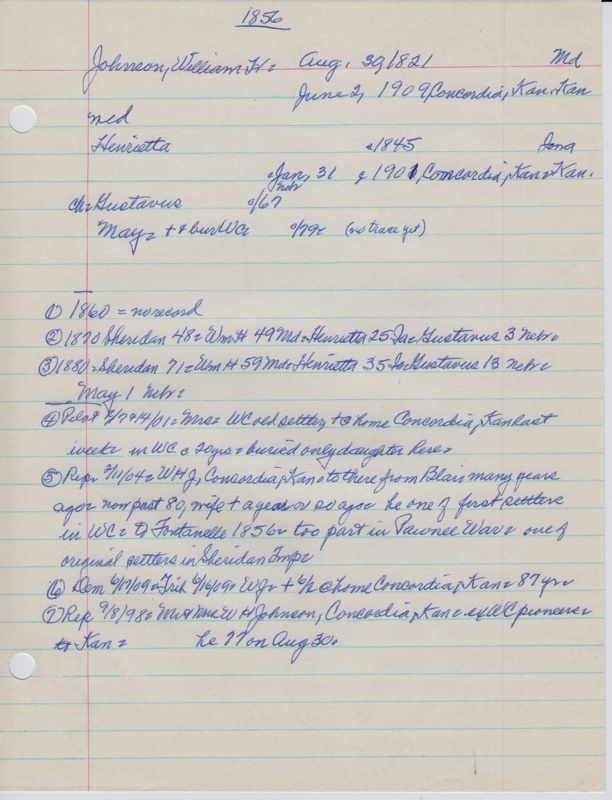 1856
Johnson, William H= Aug. 30, 1821 Md
June 2, 1909, Concordia, Kan. Kan
med
Henrietta c1845 Iowa
Jan, 31 1901, Concordia, Kan= Kan.
nebr
ch= Gustavus c/67
May= + + bur WC= c/79= (no trace yet)
① 1860 = no record
② 1870 Sheridan 48= Wm H 49 Md= Henrietta 25 Ia= Gustavus 3 nebr=
③ 1880= Sheridan 71= Wm H 59 Md= Henrietta 35 Ia= Gustavus 13 nebr=
May 1 nebr=
④ Pilot 2/7+14/01= Mrs= WC old settler + @ home Concordia, Kan last
week= in WC c 20 yrs= buried only daughter here=
⑤ Rep= 2/11/04= W H J, Concordia, Kan= to there from Blair many years
ago= now past 80, wife + a year or so ago= he one of first settlers
in WC= to Fontanelle 1856= too part in Pawnee War= one of
original settlers in Sheridan Twp=
⑥ Dem 6/17/09= Trib 6/16/09= W J= + 6/2 @ home Concordia, Kan= 87 yr=
⑦ Rep 9/8/98= Mr + Mrs W H Johnson, Concordia, Kan= ex WC pioneers=
to Kan= he 77 on Aug 30.